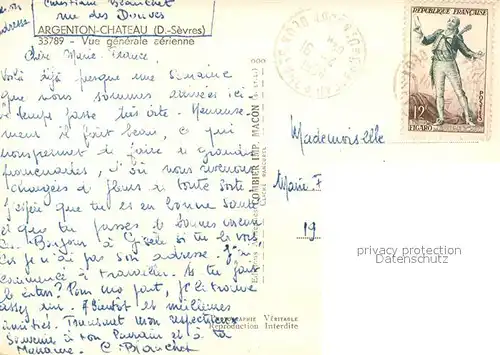 Christiane Blanchet
rue des Douves
adresse
ARGENTON-CHATEAU (D.-Sèvres)
33789 - Vue générale aérienne
Chère Marie-France,
Voilà déjà presque une semaine
que nous sommes arrivées ici
le temps passe très vite. Heureuse-
ment il fait beau, ce qui
nous permet de faire de grandes
promenades, d'où nous revenons
chargées de fleurs de toute sorte
J'espère que tu es en bonne santé
et que tu passes de bonnes vacan
Bonjour à Gisèle si tu la vois,
car je n'ai pas son adresse. J'ai
commencé à travailler. As tu fait
Pour ma part, je le trouve
assez
A bientôt et meilleures
amitiés. Transmet mon respectueux
souvenir à ton Parrain et à ta
Marraine. C. Blanchet
COMBIER IMP. MACON
PHOTOGRAPHIE VÉRITABLE
Reproduction Interdite
Mademoiselle
Marie. F
19
12
POSTES
FIGARO
privacy protection
Datenschutz